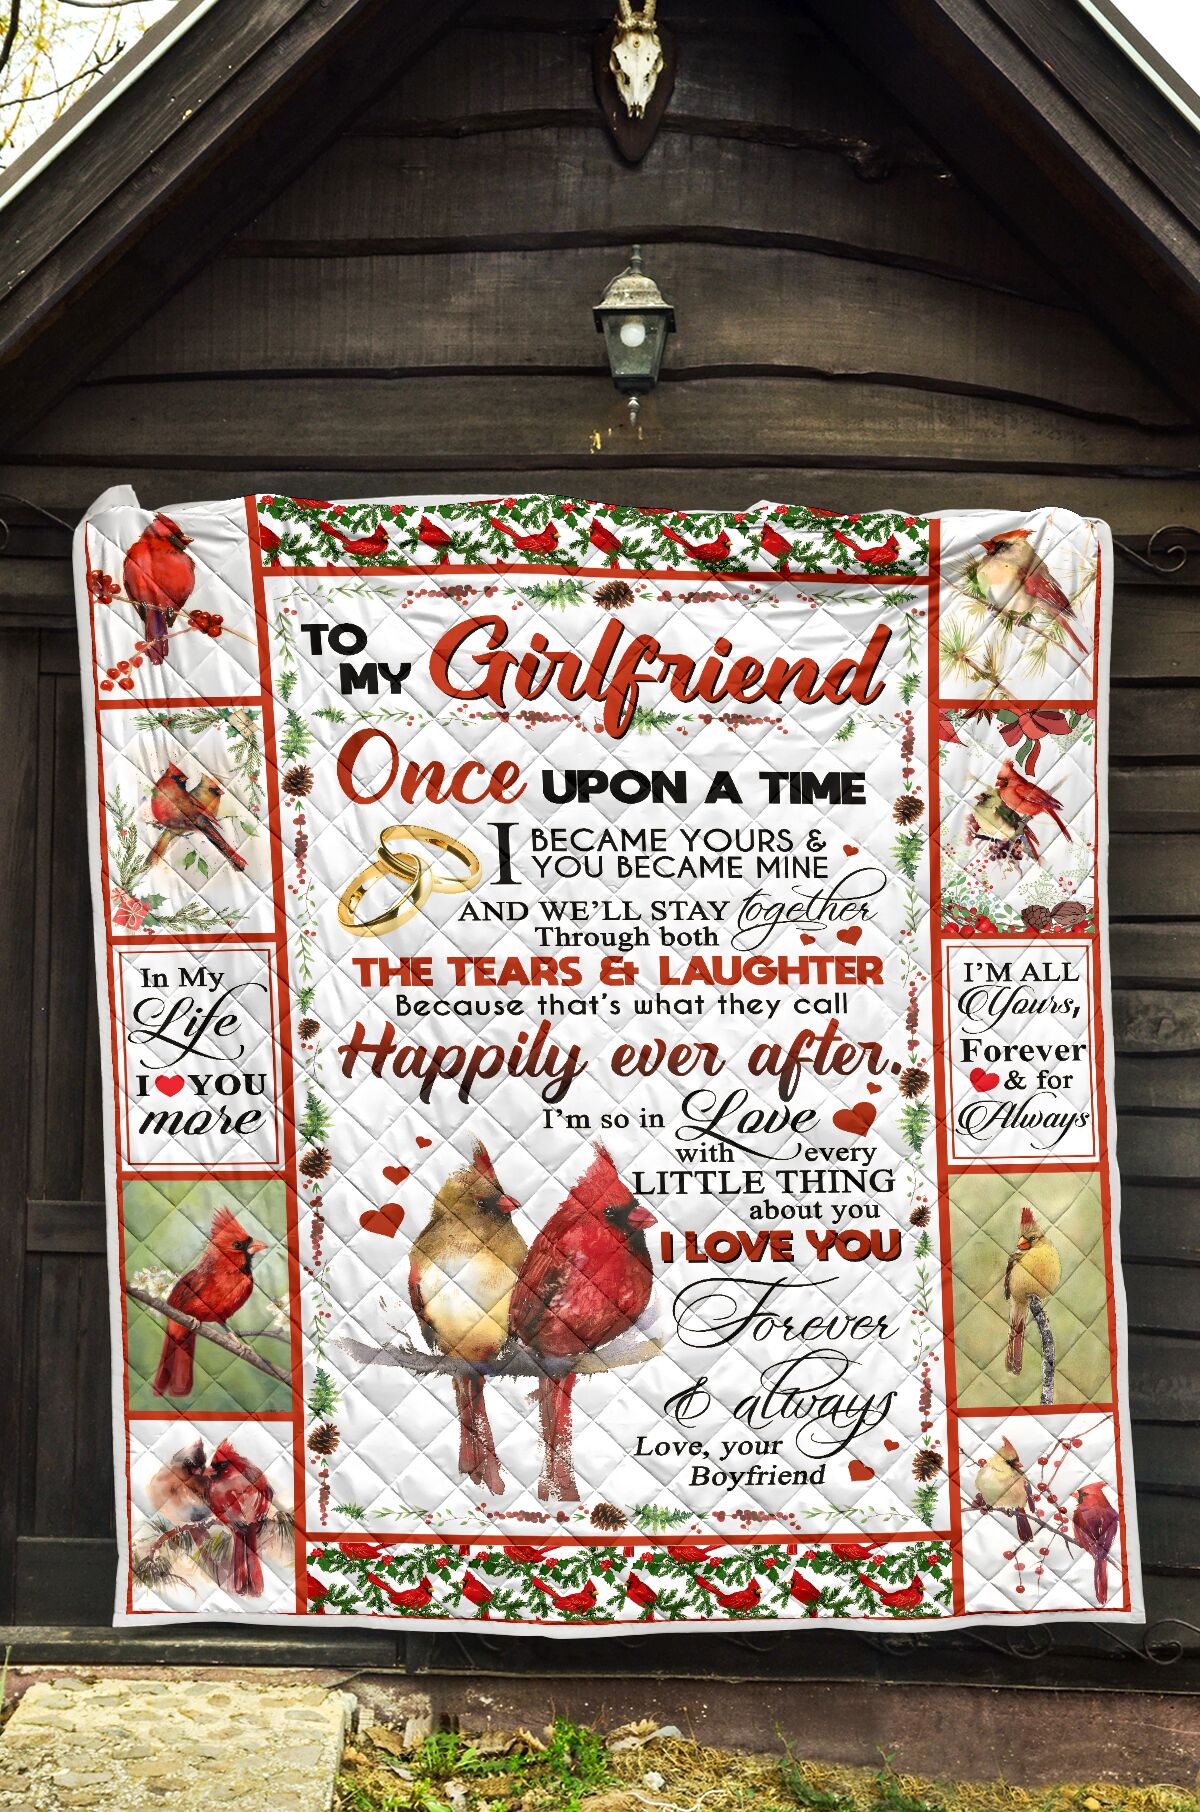 TO
MY Girlfriend
Once UPON A TIME
I BECAME YOURS &
YOU BECAME MINE
AND WE'LL STAY together
Through both
THE TEARS & LAUGHTER
Because that's what they call
Happily ever after.
I'm so in Love
with every
LITTLE THING
about you
I LOVE YOU
Forever
& always
Love, your
Boyfriend
In My
Life
I YOU
more
I'M ALL
Yours,
Forever
& for
Always